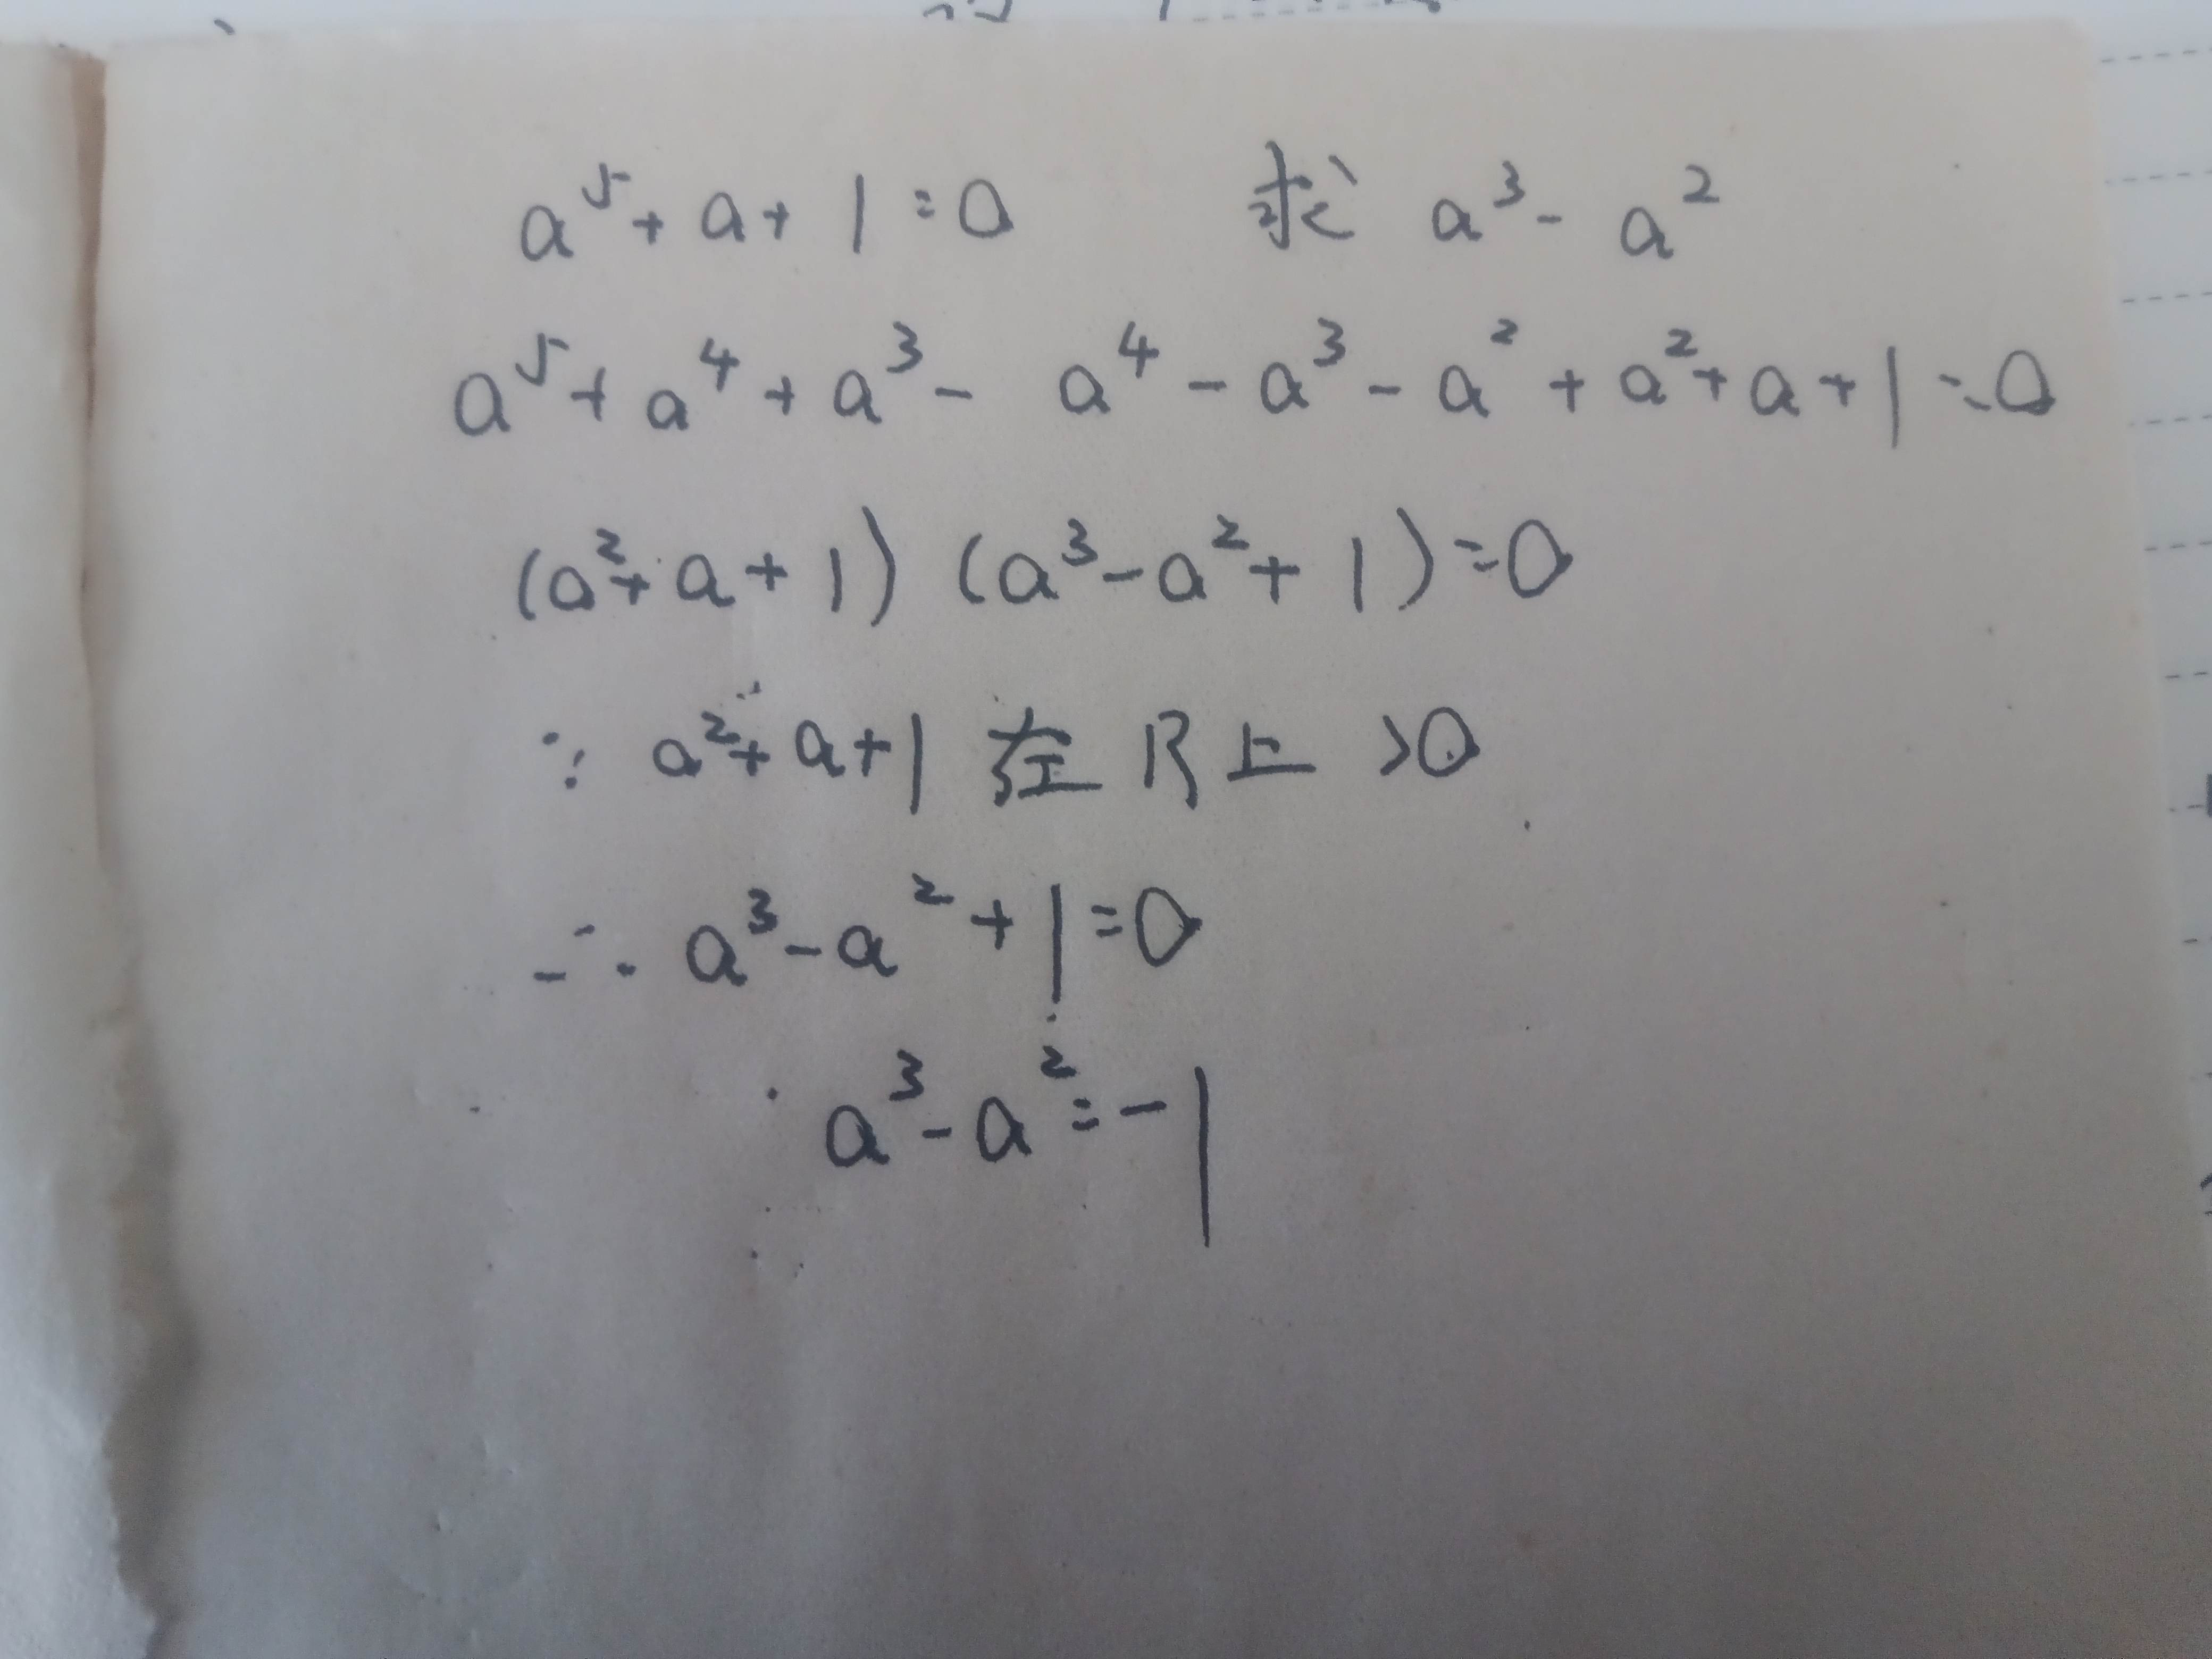 a⁵+a+1=0 求 a³-a²
a⁵+a⁴+a³-a⁴-a³-a²+a²+a+1=0
(a²+a+1)(a³-a²+1)=0
∵ a²+a+1 在R上 >0
∴ a³-a²+1=0
a³-a²=-1